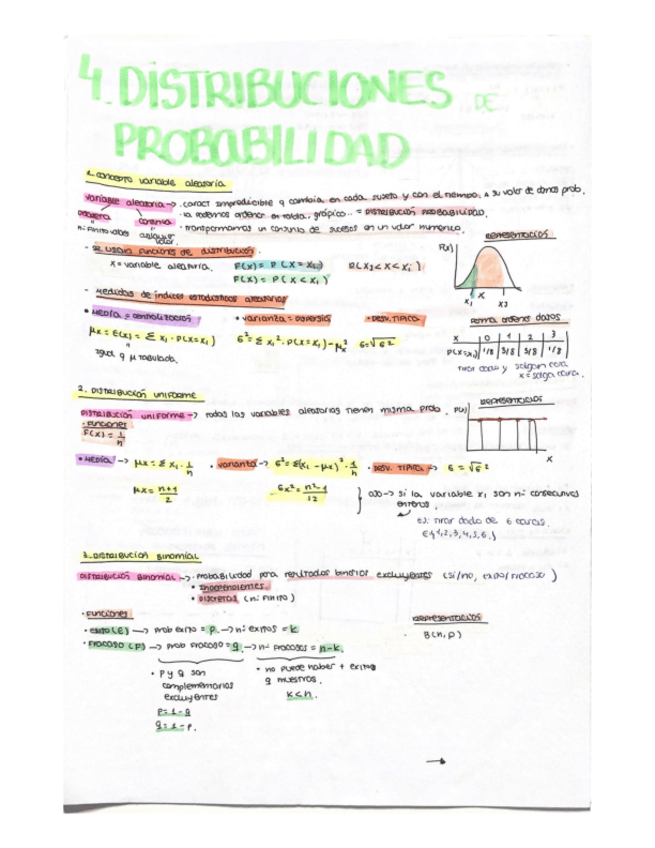 4. DISTRIBUCIONES DE
PROBABILIDAD
1. concepto variable aleatoria
variable aleatoria → · caract impredecible q cambia en cada sujeto y con el tiempo. A su valor de damos prob.
discreta continua · la podemos ordenar en tabla, gráfico... = DISTRIBUCIÓN PROBABILIDAD.
nº finito valores cualquier valor. · transformamos un conjunto de sucesos en un valor numérico.
- se usan funciones de distribución.
x = variable aleatoria. F(x) = P(X = x₁) P(x₂ < x < x₁)
F(x) = P(X < x₁)
REPRESENTACIÓN
P(x)
x₁ x x₂
- medidas de índices estadísticos aleatorias
• MEDIA = centralización • varianza = dispersión · DESV. TIPICA
μx = E(x) = Σ x₁ · P(x = x₁) σ² = Σ x₁² · P(x = x₁) - μx² σ = √σ²
igual q μ tabulada.
forma ordenar datos
x 0 1 2 3
P(x = x₁) 1/8 3/8 3/8 1/8
tirar dado y salgan cara
x = salga cara.
2. DISTRIBUCIÓN UNIFORME
DISTRIBUCIÓN UNIFORME → todas las variables aleatorias tienen misma prob.
· Funciones
F(x) = 1/n
REPRESENTACIÓN
P(x)
x
• MEDIA → μx = Σ x₁ · 1/n • varianza → σ² = Σ(x₁ - μx)² · 1/n • DESV. TIPICA → σ = √σ²
μx = n+1/2 σx² = n²-1/12 } ojo → si la variable x₁ son nº consecutivos
enteros.
ej: tirar dado de 6 caras.
E{1,2,3,4,5,6.}
3. DISTRIBUCIÓN BINOMIAL
DISTRIBUCIÓN BINOMIAL → · probabilidad para resultados binarios excluyentes (si/no, éxito/fracaso)
• Independientes.
• DISCRETAS (nº finito)
· Funciones
· éxito (E) → prob éxito = p. → nº éxitos = k
· Fracaso (F) → prob fracaso = q. → nº fracasos = n-k.
REPRESENTACIÓN
B(n,p)
• p y q son
complementarios
excluyentes
p = 1 - q
q = 1 - p.
• no puede haber + éxitos
q muestras.
k < n.